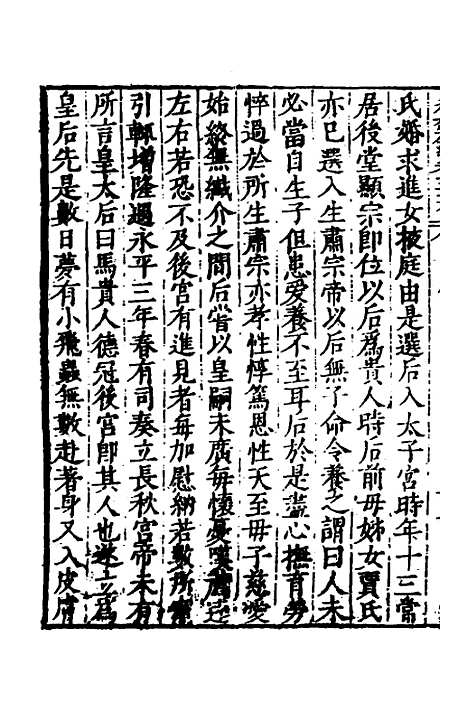 氏婚求進女掖庭由是選后入太子宮時年十三常
居後堂顯宗即位以后爲貴人時后前母姊女賈氏
亦已選入生肅宗帝以后無子命令養之謂曰人未
必當自生子但患愛養不至耳后於是盡心撫育勞
悴過於所生肅宗亦孝性惇篤恩性天至母子慈愛
始終無纖介之間后嘗以皇嗣未廣每懷憂嘆薦達
左右若恐不及後宮有進見者每加慰納若數所寵
引輒增隆遇永平三年春有司奏立長秋宮帝未有
所言皇太后曰馬貴人德冠後宮即其人也遂立爲
皇后先是數日夢有小飛蟲無數赴著身又入皮膚